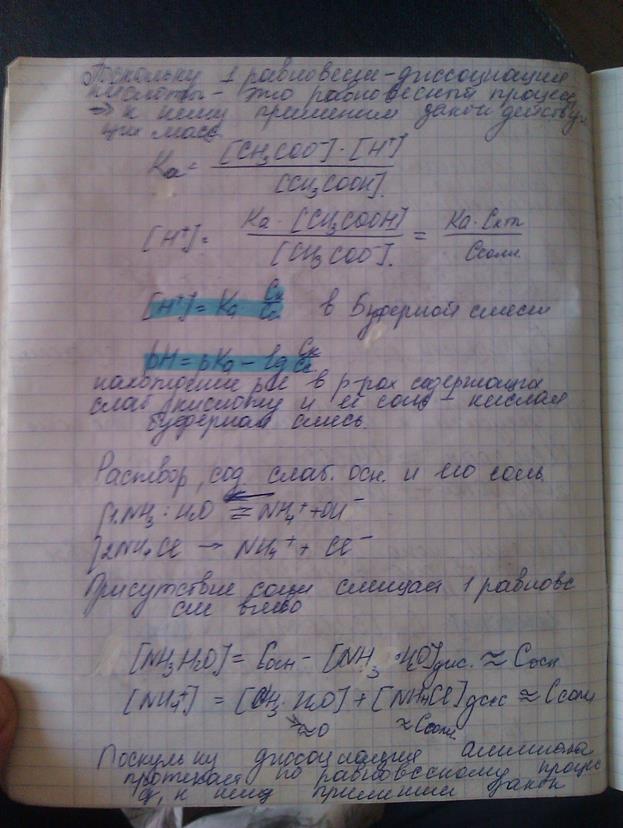 Поскольку 1 равновесие - диссоциация
кислоты - это равновесный процесс
⇒ к нему применим закон действую
щих масс
Ka = [CH₃COO⁻]·[H⁺] / [CH₃COOH]
[H⁺] = Ka·[CH₃COOH] / [CH₃COO⁻] = Ka·Cкты / Cсоли
[H⁺] = Ka Cк/Cс в буферной смеси
pH = pKa - lg Cк/Cс
нахождение рН в р-рах содержащих
слаб кислоту и её соль - кислая
буферная смесь.
Раствор, сод слаб. осн. и его соль
1. NH₃·H₂O ⇄ NH₄⁺ + OH⁻
2 NH₄Cl → NH₄⁺ + Cl⁻
Присутствие соли смещая 1 равновс
сие влево
[NH₃H₂O] = Cосн - [NH₃·H₂O]дис. ≈ Cосн
[NH₄⁺] = [NH₃·H₂O] + [NH₄Cl]дисс ≈ Cсоли
≈0 ≈Cсоли
Поскульку диссоциация аммиака
протекает по равновесному процес
су, к нему применим закон